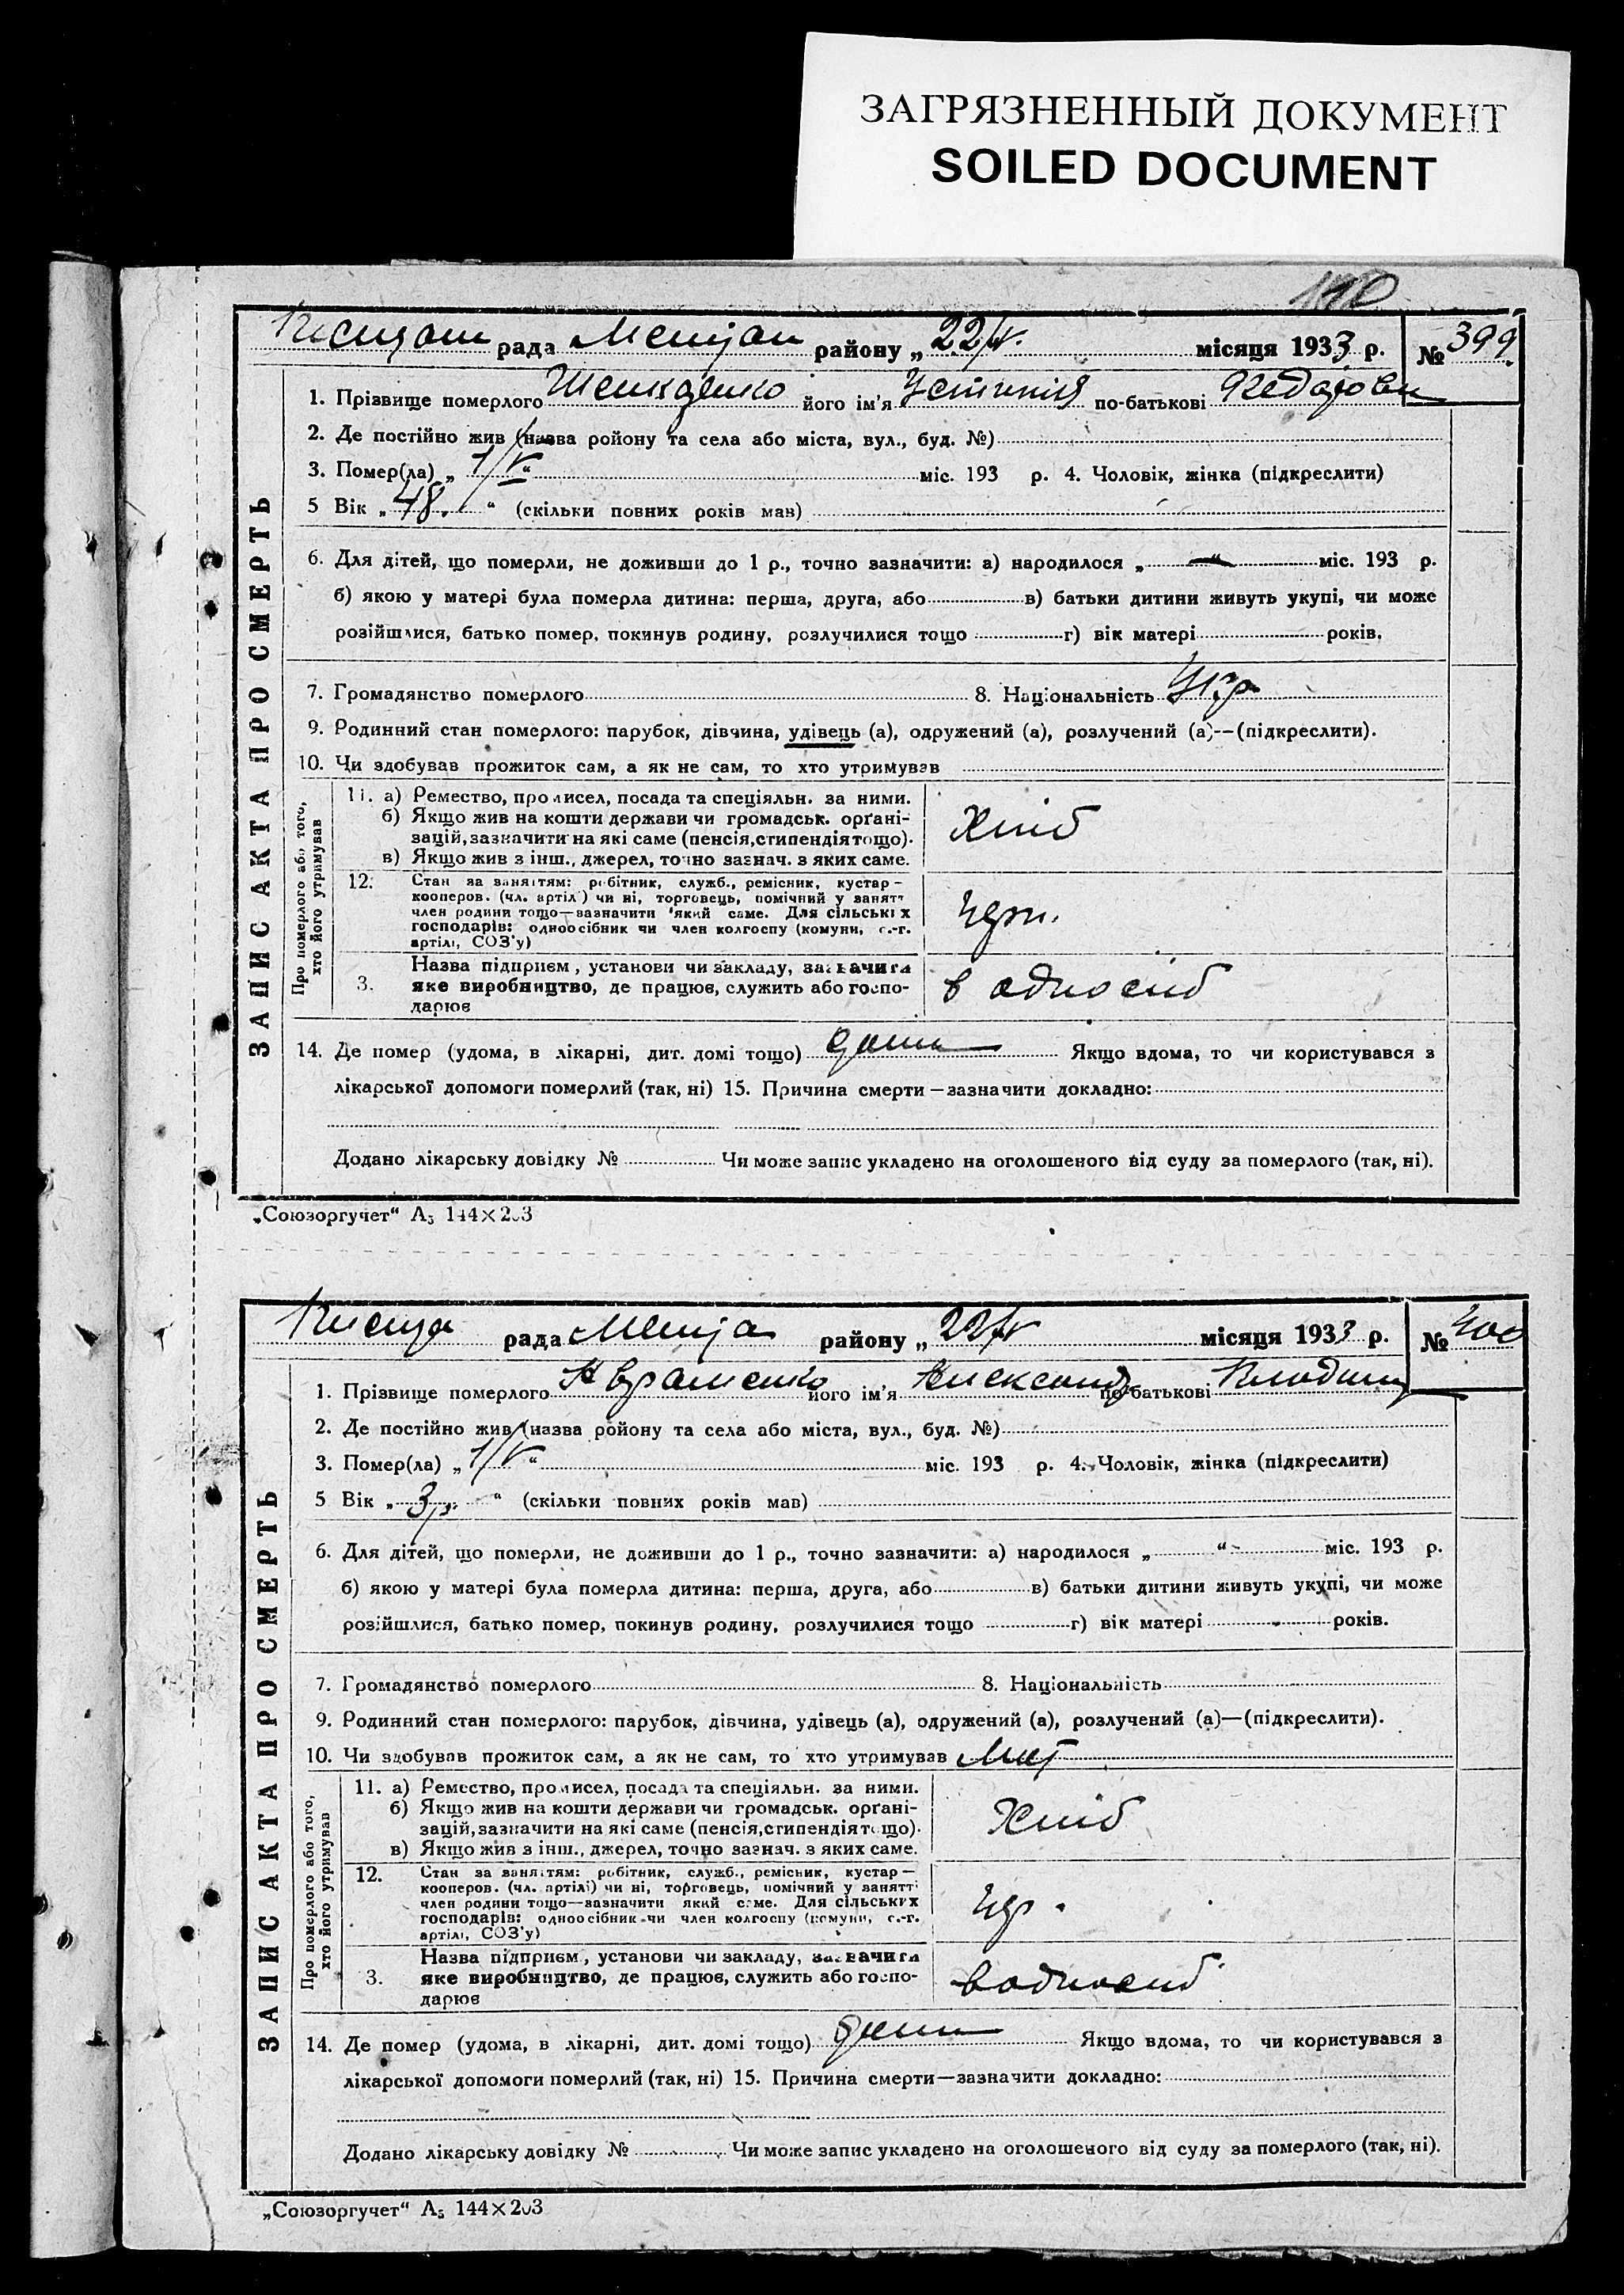 ЗАГРЯЗНЕННЫЙ ДОКУМЕНТ
SOILED DOCUMENT
рада району „22/V. місяця 1933 р. № 399
1. Прізвище померлого його ім'я по-батькові
2. Де постійно жив (назва ройону та села або міста, вул., буд. №)
3. Помер(ла) „1/V“ міс. 193 р. 4. Чоловік, жінка (підкреслити)
5 Вік „48.“ (скільки повних років мав)
6. Для дітей, що померли, не доживши до 1 р., точно зазначити: а) народилося „ “ міс. 193 р.
б) якою у матері була померла дитина: перша, друга, або в) батьки дитини живуть укупі, чи може
розійшлися, батько помер, покинув родину, розлучилися тощо г) вік матері років.
7. Громадянство померлого 8. Національність Укр
9. Родинний стан померлого: парубок, дівчина, удівець (а), одружений (а), розлучений (а)—(підкреслити).
10. Чи здобував прожиток сам, а як не сам, то хто утримував
Про померлого або того, хто його утримував
11. а) Ремество, промисел, посада та спеціяльн. за ними.
б) Якщо жив на кошти держави чи громадськ. орґані-
зацій, зазначити на які саме (пенсія, стипендія тощо).
в) Якщо жив з інш., джерел, точно зазнач. з яких саме.
Хліб
12. Стан за заняттям: робітник, служб., ремісник, кустар—
кооперов. (чл. артіл.) чи ні, торговець, помічний у занятт
член родини тощо—зазначити який саме. Для сільських
господарів: одноосібник чи член колгоспу (комуни, с.-г.
артілі, СОЗ'у)
3. Назва підприєм, установи чи закладу, зазначити
яке виробництво, де працює, служить або госпо-
дарює
в одноосіб
14. Де помер (удома, в лікарні, дит. домі тощо) дома Якщо вдома, то чи користувався з
лікарської допомоги померлий (так, ні) 15. Причина смерти—зазначити докладно:
Додано лікарську довідку № Чи може запис укладено на оголошеного від суду за померлого (так, ні).
ЗАПИС АКТА ПРО СМЕРТЬ
„Союзоргучет“ А₅ 144×203
рада району „22/V місяця 1933 р. № 400
1. Прізвище померлого Авраменко його ім'я Александ по-батькові
2. Де постійно жив (назва ройону та села або міста, вул., буд. №)
3. Помер(ла) „1/V“ міс. 193 р. 4. Чоловік, жінка (підкреслити)
5 Вік „3р.“ (скільки повних років мав)
6. Для дітей, що померли, не доживши до 1 р., точно зазначити: а) народилося „ “ міс. 193 р.
б) якою у матері була померла дитина: перша, друга, або в) батьки дитини живуть укупі, чи може
розійшлися, батько помер, покинув родину, розлучилися тощо г) вік матері років.
7. Громадянство померлого 8. Національність
9. Родинний стан померлого: парубок, дівчина, удівець (а), одружений (а), розлучений (а)—(підкреслити).
10. Чи здобував прожиток сам, а як не сам, то хто утримував
Про померлого або того, хто його утримував
11. а) Ремество, промисел, посада та спеціяльн. за ними.
б) Якщо жив на кошти держави чи громадськ. орґані-
зацій, зазначити на які саме (пенсія, стипендія тощо).
в) Якщо жив з інш., джерел, точно зазнач. з яких саме.
Хліб
12. Стан за заняттям: робітник, служб., ремісник, кустар—
кооперов. (чл. артілі) чи ні, торговець, помічний у занятті
член родини тощо—зазначити який саме. Для сільських
господарів: одноосібник чи член колгоспу (комуни, с.-г.
артілі, СОЗ'у)
3. Назва підприєм, установи чи закладу, зазначити
яке виробництво, де працює, служить або госпо-
дарює
в одноосіб
14. Де помер (удома, в лікарні, дит. домі тощо) дома Якщо вдома, то чи користувався з
лікарської допомоги померлий (так, ні) 15. Причина смерти—зазначити докладно:
Додано лікарську довідку № Чи може запис укладено на оголошеного від суду за померлого (так, ні).
ЗАПИС АКТА ПРО СМЕРТЬ
„Союзоргучет“ А₅ 144×203